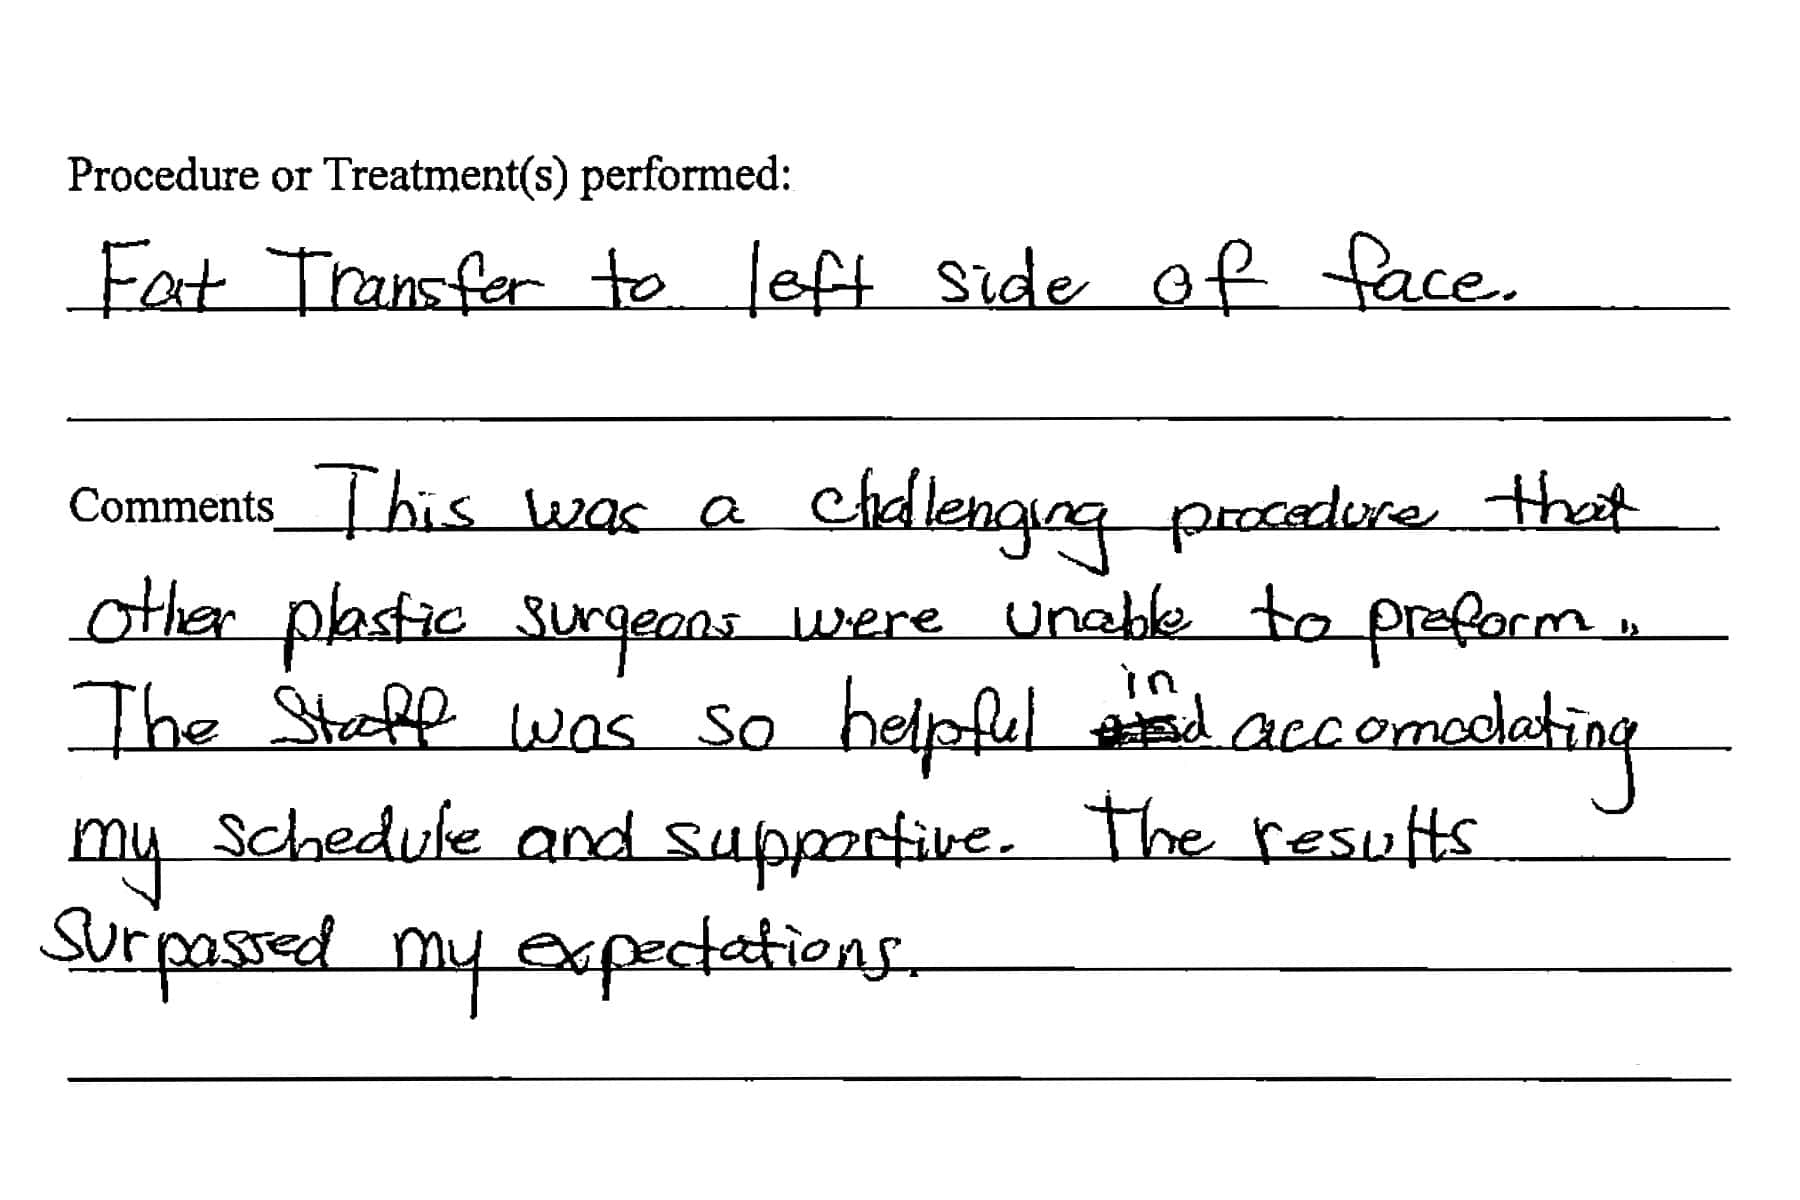 Procedure or Treatment(s) performed:
Fat Transfer to left side of face.
Comments This was a challenging procedure that
other plastic surgeons were unable to preform.
The Staff was so helpful in accomodating
my schedule and supportive. The results
surpassed my expectations.